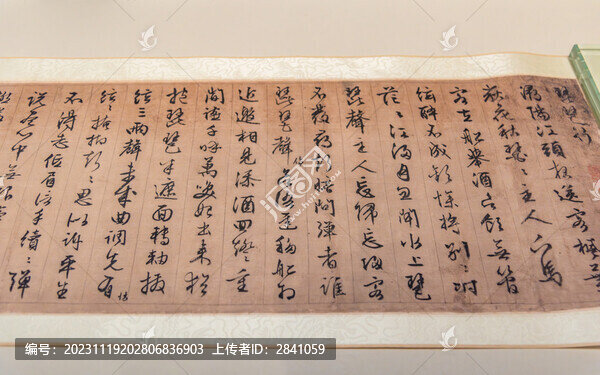 琵琶行
潯陽江頭夜送客楓葉
荻花秋瑟〻主人下馬
客在船舉酒欲飲無管
絃醉不成歡慘將別〻時
茫〻江浸月忽聞水上琵
琶聲主人忘歸客
不發尋聲暗問彈者誰
琵琶聲停欲語遲移船相
近邀相見添酒回燈重
開宴千呼萬喚始出來猶
抱琵琶半遮面轉軸撥
絃三兩聲未成曲調先有情
絃〻掩抑聲〻思似訴平生
不得志低眉信手續〻彈
說盡心中無限
编号：20231119202806836903 上传者ID：2841059